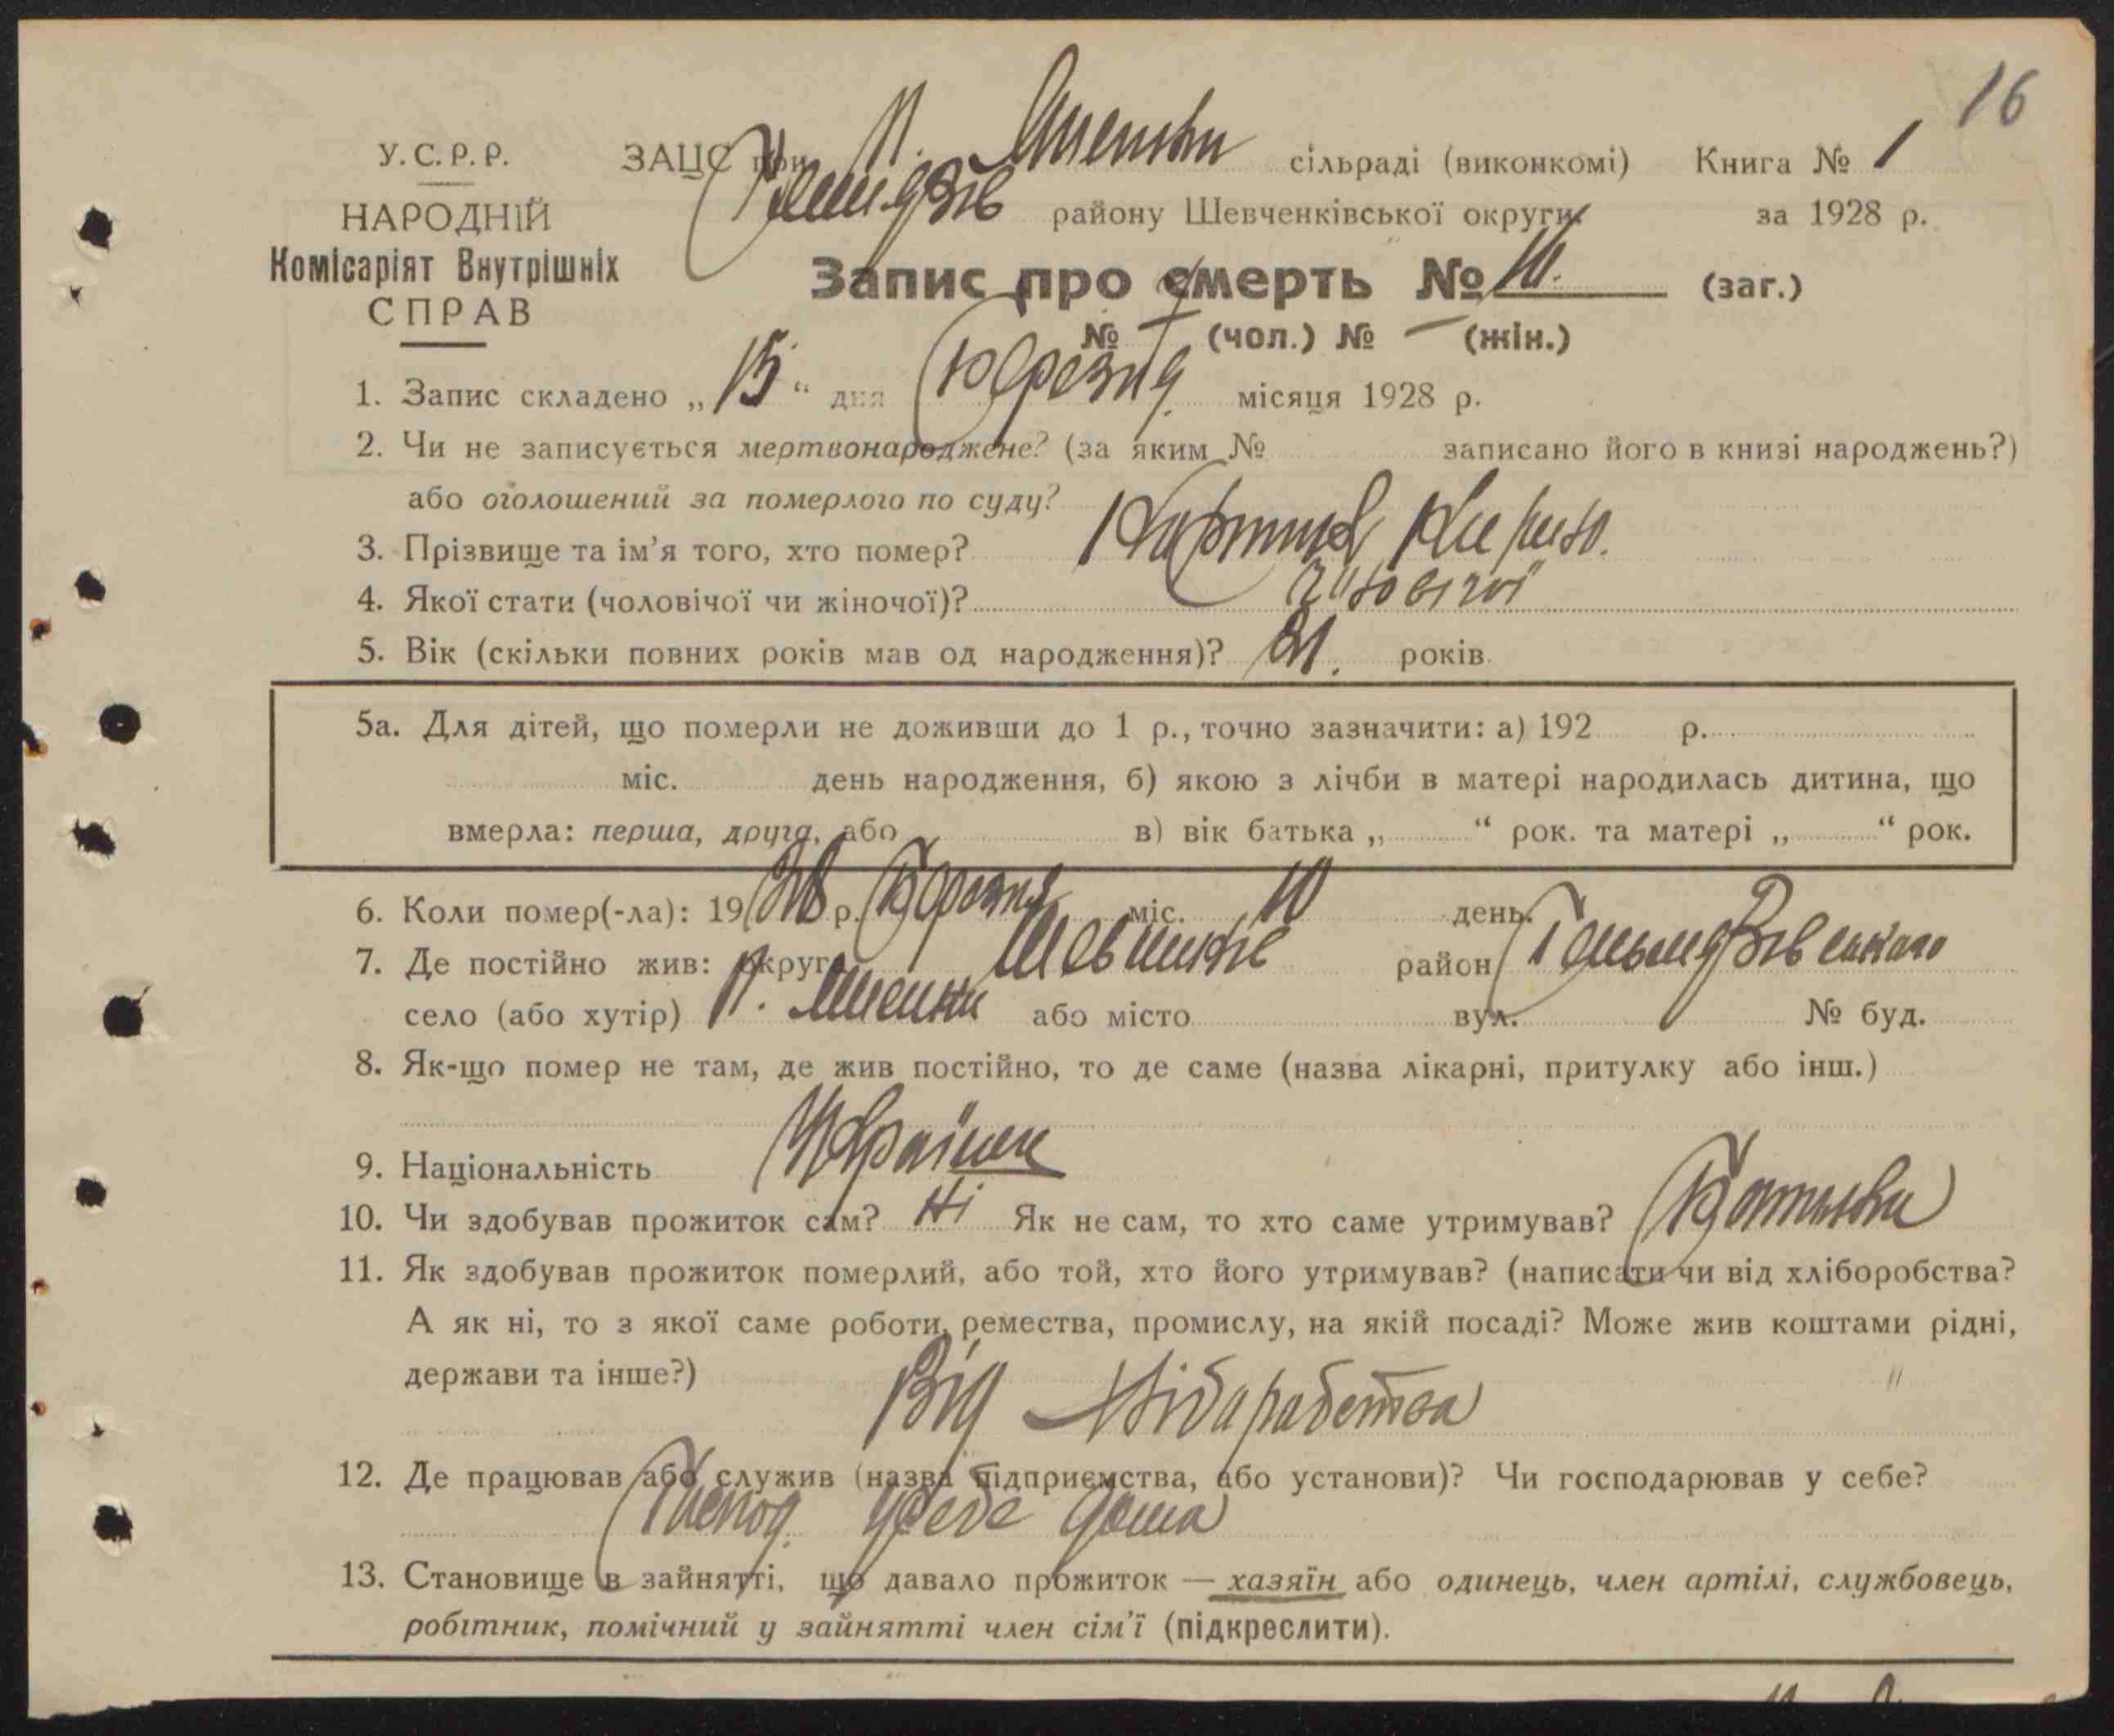 16
У.С.Р.Р. ЗАЦС при сільраді (виконкомі) Книга № 1
НАРОДНІЙ району Шевченківської округи за 1928 р.
Комісаріят Внутрішніх
СПРАВ
Запис про смерть № 10. (заг.)
№ 7 (чол.) № — (жін.)
1. Запис складено „15“ дня Березня місяця 1928 р.
2. Чи не записується мертвонароджене? (за яким № записано його в книзі народжень?)
або оголошений за померлого по суду?
3. Прізвище та ім'я того, хто помер?
4. Якої стати (чоловічої чи жіночої)? чоловічої
5. Вік (скільки повних років мав од народження)? 21. років
5а. Для дітей, що померли не доживши до 1 р., точно зазначити: а) 192 р.
міс. день народження, б) якою з лічби в матері народилась дитина, що
вмерла: перша, друга, або в) вік батька „ “ рок. та матері „ “ рок.
6. Коли помер(-ла): 1928 р. Березня міс. 10 день.
7. Де постійно жив: округа район
село (або хутір) або місто вул. № буд.
8. Як-що помер не там, де жив постійно, то де саме (назва лікарні, притулку або інш.)
9. Національність Українец
10. Чи здобував прожиток сам? Ні Як не сам, то хто саме утримував? Батьки
11. Як здобував прожиток померлий, або той, хто його утримував? (написати чи від хліборобства?
А як ні, то з якої саме роботи, ремества, промислу, на якій посаді? Може жив коштами рідні,
держави та інше?)
Від хлібаработва
12. Де працював або служив (назва підприємства, або установи)? Чи господарював у себе?
усебе дома
13. Становище в зайнятті, що давало прожиток — хазяїн або одинець, член артілі, службовець,
робітник, помічний у зайнятті член сім'ї (підкреслити).